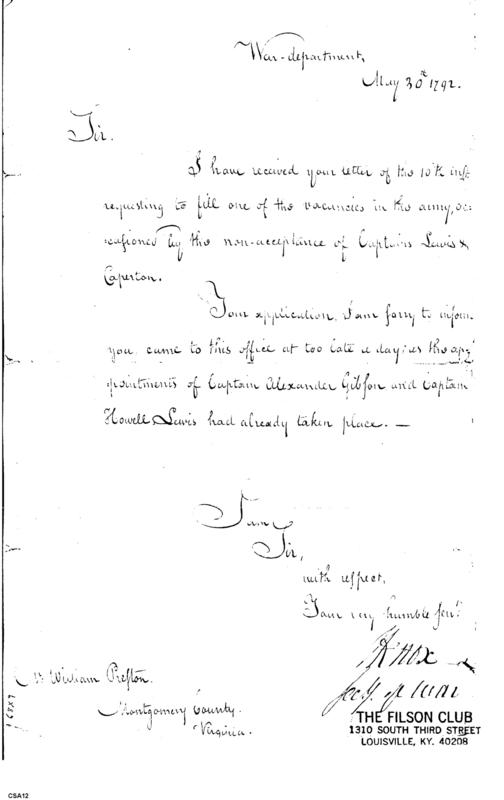 War-department,
May 30th 1792.
Sir.
I have received your letter of the 10th inst.
requesting to fill one of the vacancies in the army, oc=
=casioned by the non-acceptance of Captains Lewis &
Caperton.
Your application, I am sorry to inform
you, came to this office at too late a day; as the ap=
pointments of Captain Alexander Gibson and Captain
Howell Lewis had already taken place. —
I am
Sir,
with respect,
Your very humble servt.
HKnox
Secy of War
Mr. William Preston.
Montgomery County.
Virginia.
THE FILSON CLUB
1310 SOUTH THIRD STREET
LOUISVILLE, KY. 40208
CSA12